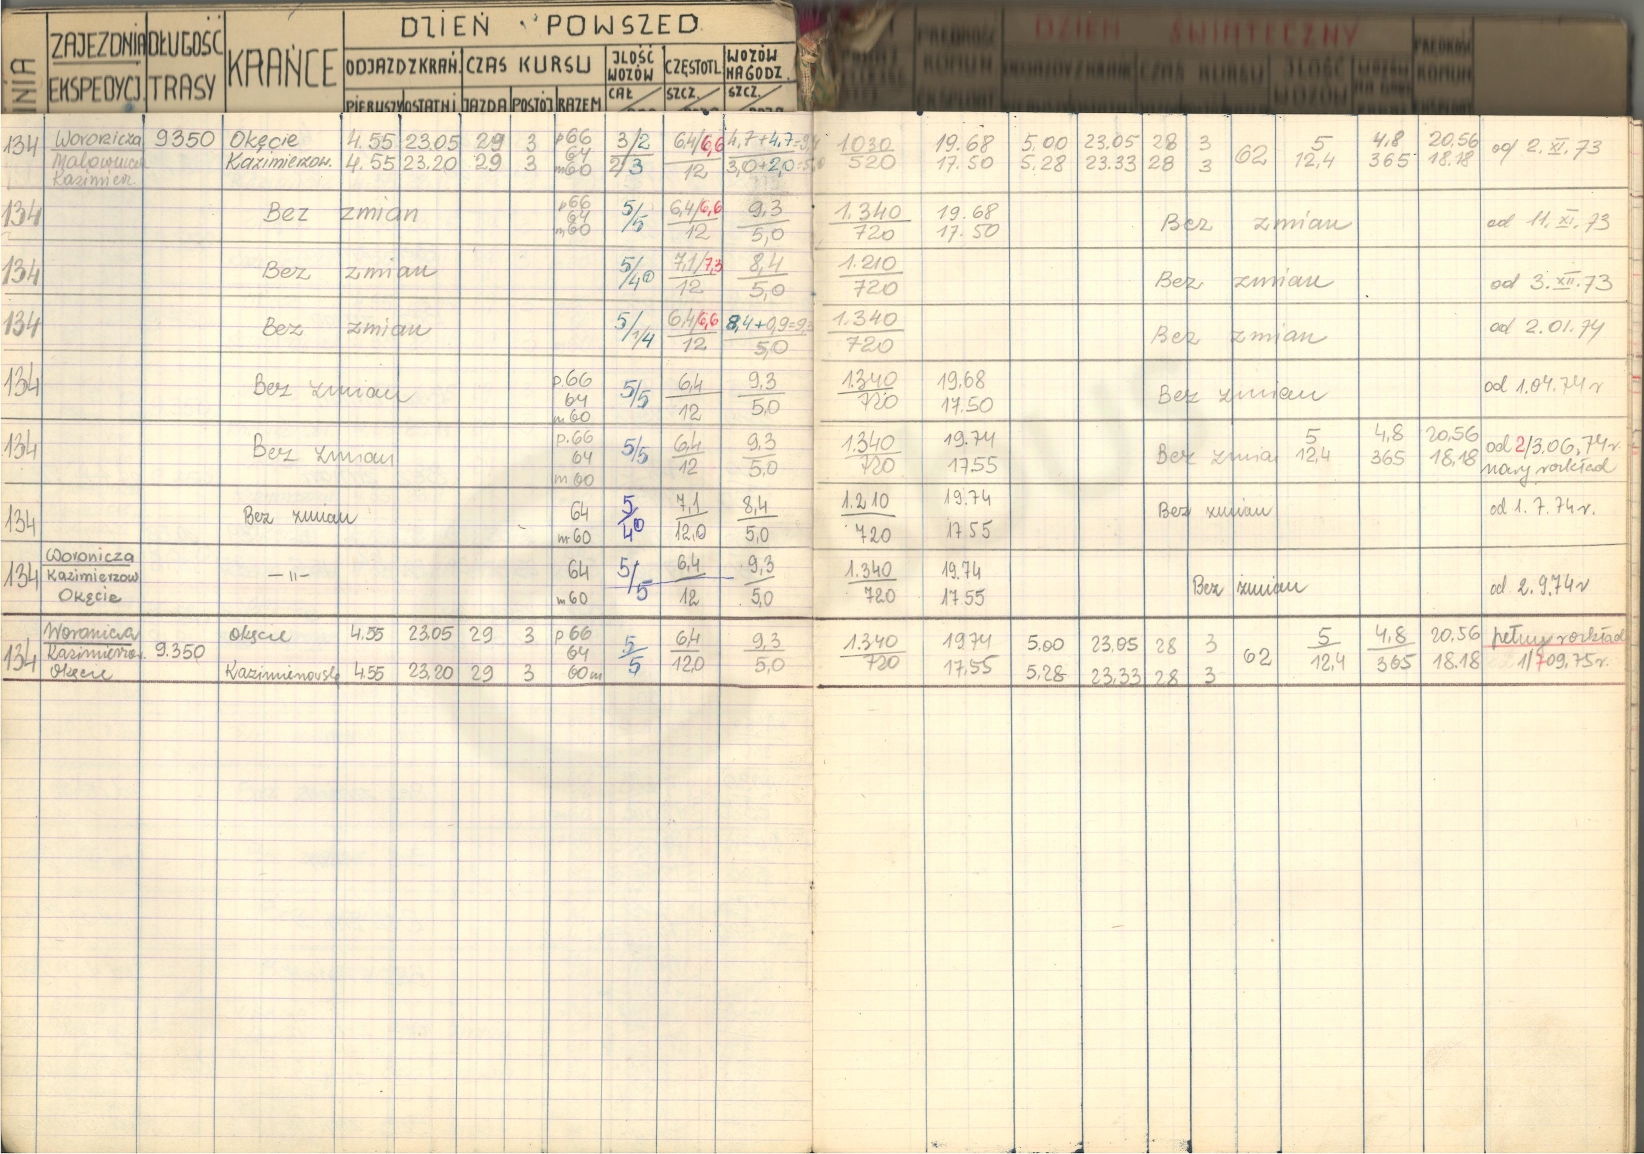 DZIEŃ POWSZED.
DZIEŃ ŚWIĄTECZNY
LINIA ZAJEZDNIA DŁUGOŚĆ KRAŃCE ODJAZD Z KRAŃ. CZAS KURSU JLOŚĆ WOZÓW CZĘSTOTL. WOZÓW NA GODZ.
EKSPEDYCJ. TRASY PIERWSZY OSTATNI JAZDA POSTÓJ RAZEM CAŁ SZCZ. SZCZ.
134 Woronicza 9350 Okęcie 4.55 23.05 29 3 p66 3/2 6,4/6,6 4,7+4,7= 1030 19.68 5.00 23.05 28 3 5 4,8 20,56 od 2.XI.73
Kazimierzow. 4.55 23.20 29 3 64 m60 2/3 12 3,0+2,0= 520 17.50 5.28 23.33 28 3 62 12,4 365 18.18
Kazimierz.
134 Bez zmian p66 64 m60 5/5 6,4/6,6 12 9,3 5,0 1.340 720 19.68 17.50 Bez zmian od 11.XI.73
134 Bez zmian 5/4① 7,1/7,3 12 8,4 5,0 1.210 720 Bez zmian od 3.XII.73
134 Bez zmian 5/1/4 6,4/6,6 12 8,4+0,9= 5,0 1.340 720 Bez zmian od 2.01.74
134 Bez zmian p.66 64 m60 5/5 6,4 12 9,3 5,0 1.340 720 19,68 17.50 Bez zmian od 1.04.74r
134 Bez zmian p.66 64 m60 5/5 6,4 12 9,3 5,0 1.340 720 19.74 17.55 Bez zmian 5 12,4 4,8 365 20,56 18,18 od 2/3.06.74r.
nowy rozkład
134 Bez zmian 64 m60 5/4① 7,1 12,0 8,4 5,0 1.210 720 19.74 17.55 Bez zmian od 1.7.74r.
Woronicza
134 Kazimierzow —"— 64 5/5 6,4 9,3 1.340 19.74 Bez zmian od 2.9.74r
Okęcie m60 12 5,0 720 17.55
Woronicza Okęcie 4.55 23.05 29 3 p66 5 6,4 9,3 1.340 19.74 5.00 23.05 28 3 5 4,8 20.56 pełny rozkład
134 9.350 64 5 12,0 5,0 720 17,55 62 12,4 365 18.18 1/709.75r.
Okęcie Kazimierzowska 4.55 23,20 29 3 60m 5,28 23,33 28 3